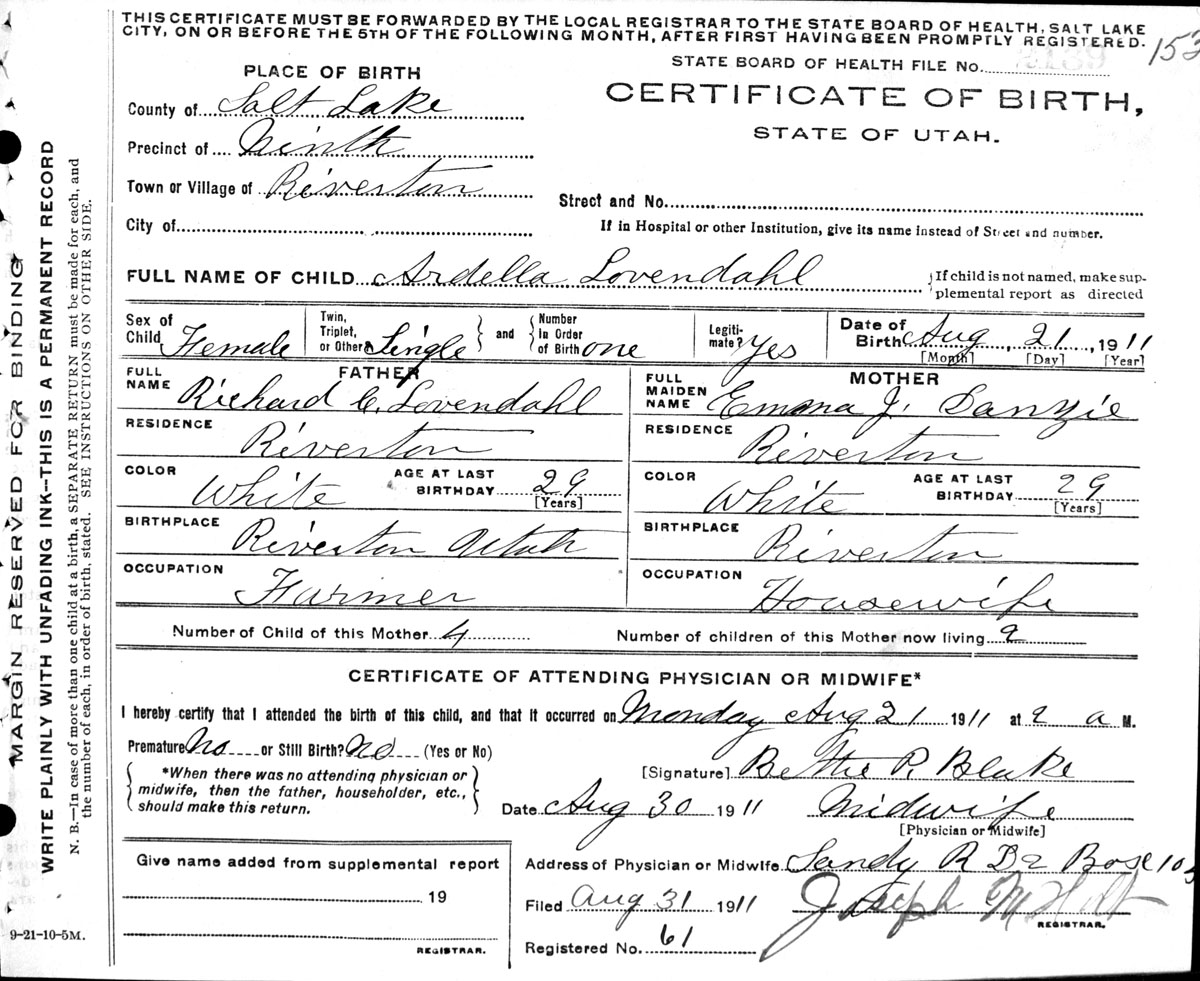 THIS CERTIFICATE MUST BE FORWARDED BY THE LOCAL REGISTRAR TO THE STATE BOARD OF HEALTH, SALT LAKE
CITY, ON OR BEFORE THE 5TH OF THE FOLLOWING MONTH, AFTER FIRST HAVING BEEN PROMPTLY REGISTERED.
153
STATE BOARD OF HEALTH FILE No.
CERTIFICATE OF BIRTH,
STATE OF UTAH.
PLACE OF BIRTH
County of Salt Lake
Precinct of Ninth
Town or Village of Riverton
City of
Street and No.
If in Hospital or other Institution, give its name instead of Street and number.
FULL NAME OF CHILD Ardella Lovendahl
If child is not named, make sup-
plemental report as directed
Sex of Child Female
Twin, Triplet, or Other Single
and
Number In Order of Birth one
Legiti-mate? Yes
Date of Birth Aug 21, 1911
[Month] [Day] [Year]
FATHER
FULL NAME Richard C. Lovendahl
RESIDENCE Riverton
COLOR White AGE AT LAST BIRTHDAY 29
[Years]
BIRTHPLACE Riverton Utah
OCCUPATION Farmer
MOTHER
FULL MAIDEN NAME Emma J.
RESIDENCE Riverton
COLOR White AGE AT LAST BIRTHDAY 29
[Years]
BIRTHPLACE Riverton
OCCUPATION Housewife
Number of Child of this Mother 4
Number of children of this Mother now living 2
CERTIFICATE OF ATTENDING PHYSICIAN OR MIDWIFE*
I hereby certify that I attended the birth of this child, and that it occurred on Monday Aug 21 1911 at 2 a M.
Premature No or Still Birth? No (Yes or No)
*When there was no attending physician or
midwife, then the father, householder, etc.,
should make this return.
[Signature] Bettie P. Blake
Date Aug 30 1911 Midwife
[Physician or Midwife]
Give name added from supplemental report
19
REGISTRAR.
Address of Physician or Midwife Sandy R D 2 Box 103
Filed Aug 31 1911 Joseph M Holt
REGISTRAR.
Registered No. 61
9-21-10-5M.
MARGIN RESERVED FOR BINDING
WRITE PLAINLY WITH UNFADING INK—THIS IS A PERMANENT RECORD
N. B.—In case of more than one child at a birth, a SEPARATE RETURN must be made for each, and
the number of each, in order of birth, stated. SEE INSTRUCTIONS ON OTHER SIDE.